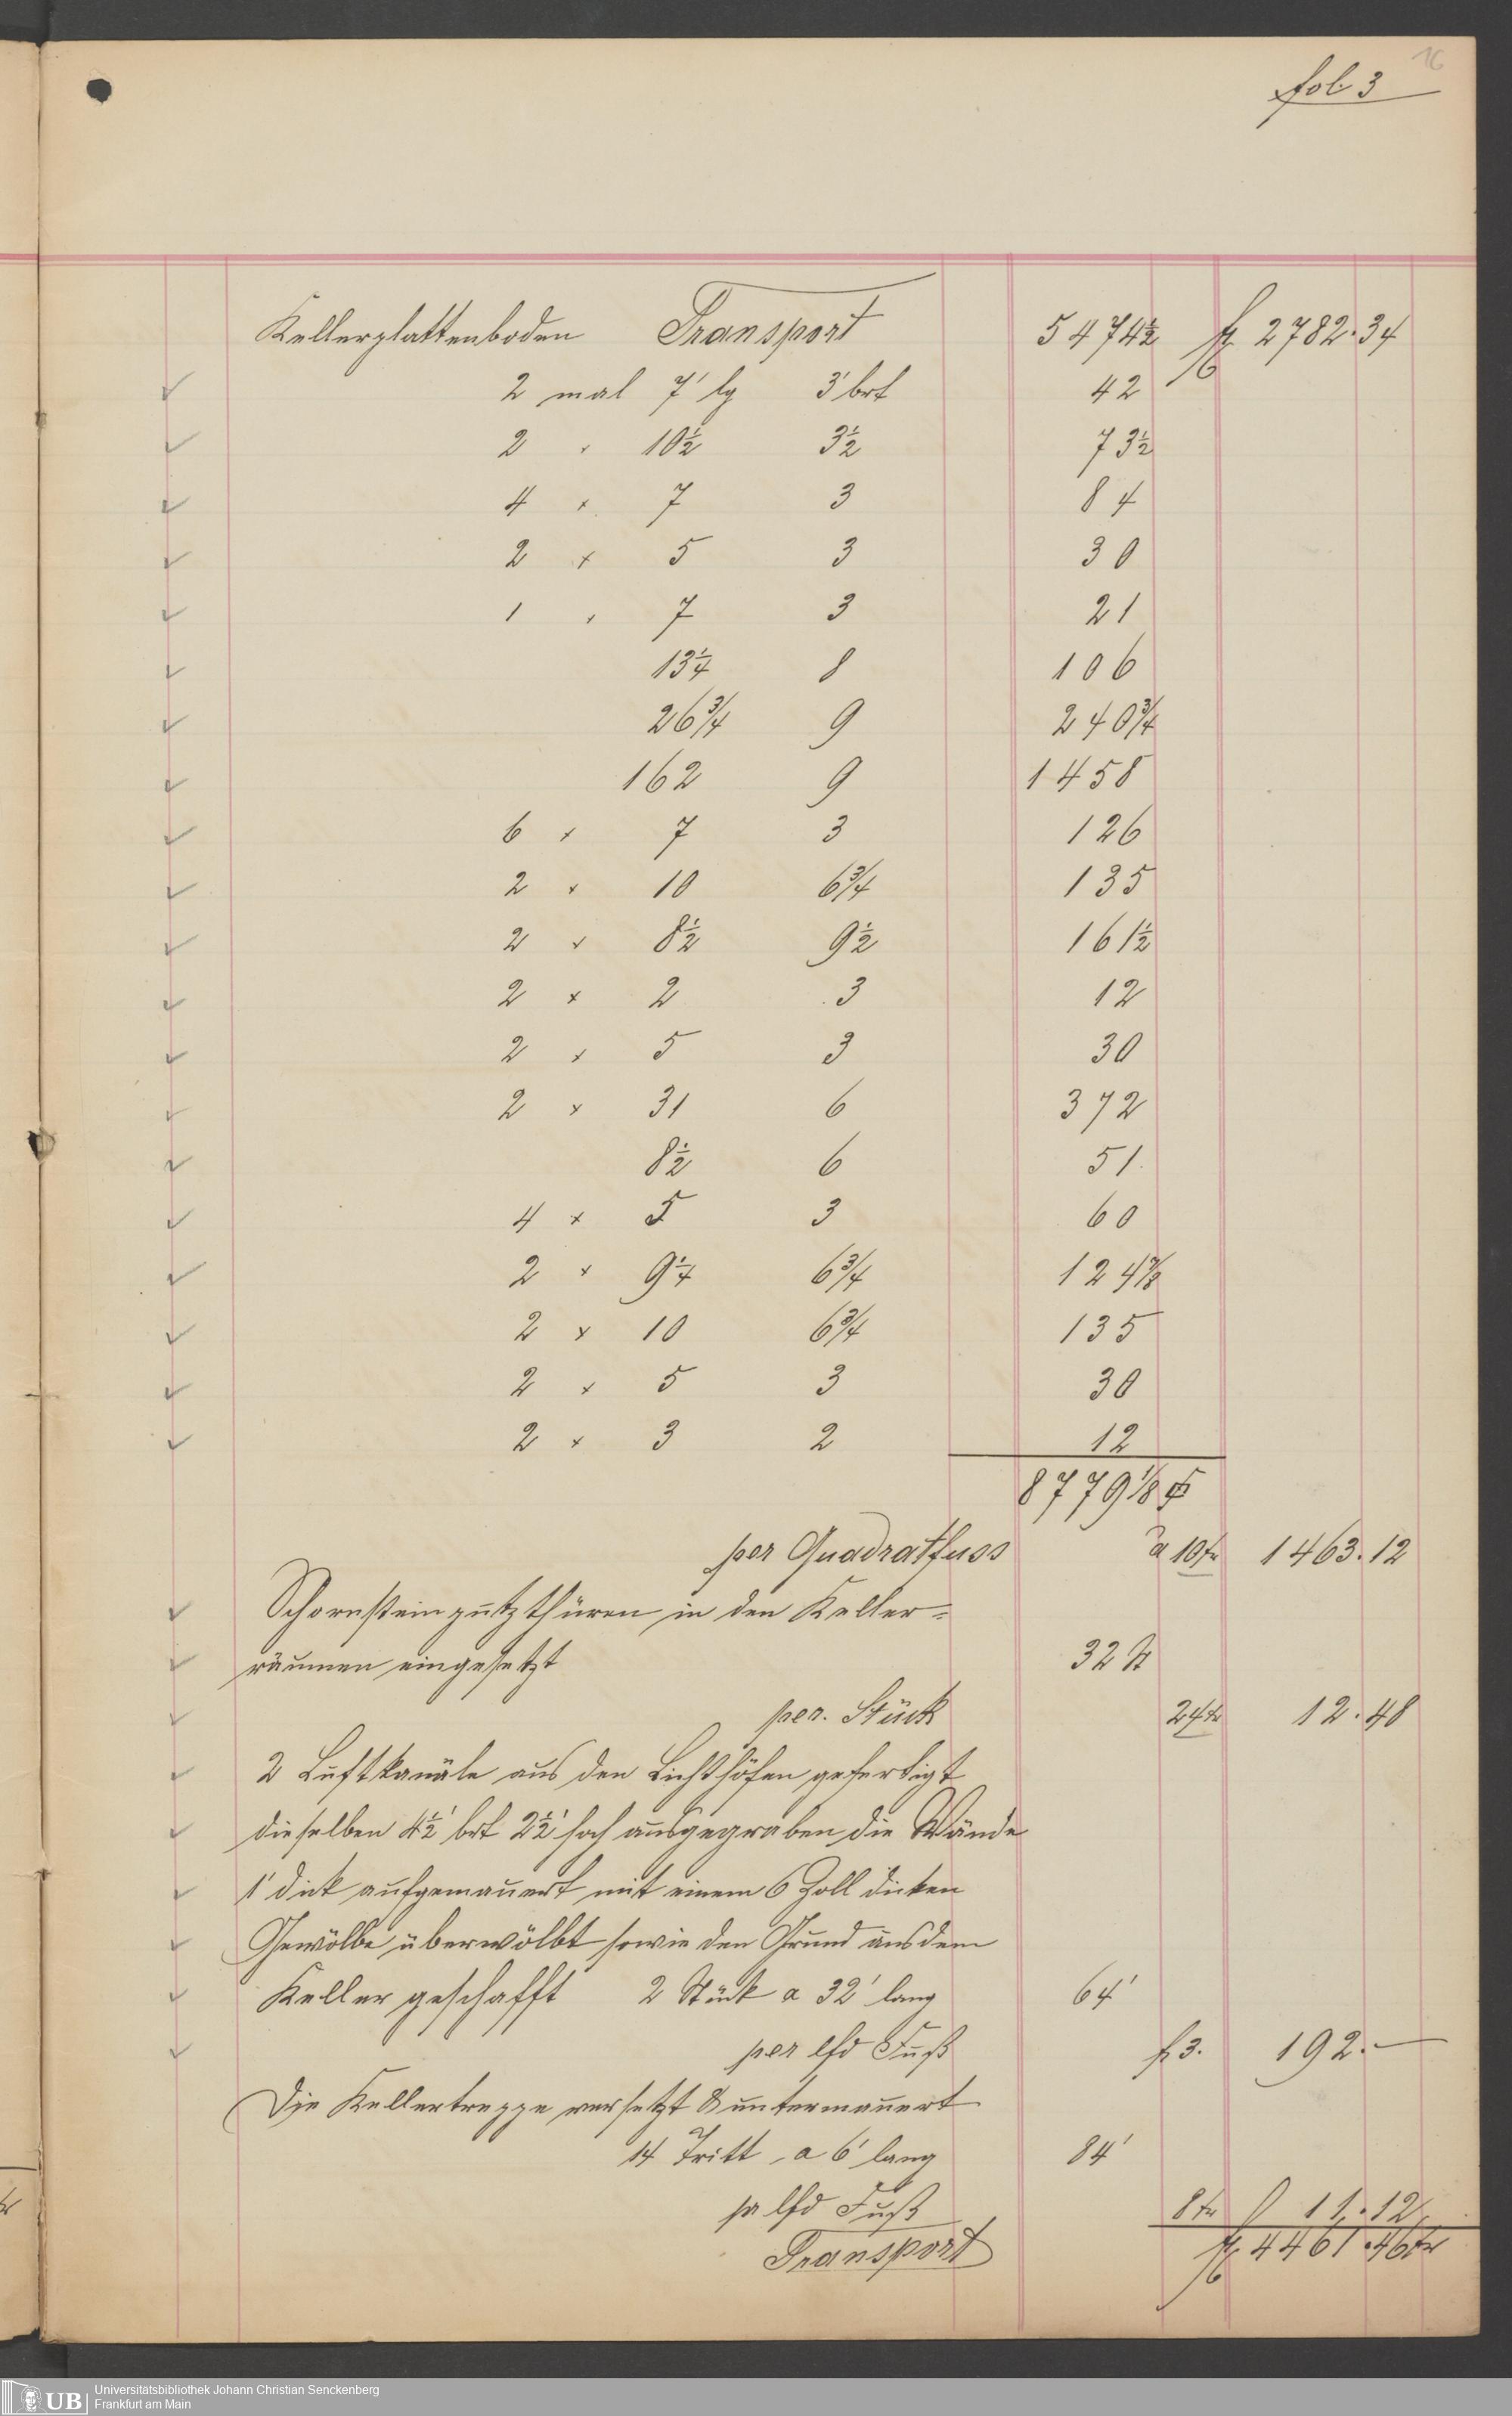 16
fol. 3
Kellerplattenboden Transport 5474½ fl 2782.34
2 mal 7' lg 3' brt 42
2 " 10½ 3½ 73½
4 " 7 3 84
2 " 5 3 30
1 " 7 3 21
13¼ 8 106
26¾ 9 240¾
162 9 1458
6 " 7 3 126
2 " 10 6¾ 135
2 " 8½ 9½ 161½
2 " 2 3 12
2 " 5 3 30
2 " 31 6 372
8½ 6 51
4 " 5 3 60
2 " 9¼ 6¾ 124⅞
2 " 10 6¾ 135
2 " 5 3 30
2 " 3 2 12
8779⅛
per Quadratfuss a 10 kr 1463.12
Schornsteinputzthüren in den Keller=
räumen eingesetzt 32 St
per. Stück 24 kr 12.48
2 Luftkanäle aus den Lichthöfen gefertigt
dieselben 4½' brt 2½' hoch ausgegraben die Wände
1' dick aufgemauert mit einem 6 Zoll dicken
Gewölbe überwölbt sowie den Grund aus dem
Keller geschafft 2 Stück a 32' lang 64'
per lfd Fuß fl 3. 192.—
Die Kellertreppe versetzt & untermauert
14 Tritt a 6' lang 84'
pr lfd Fuß 8 kr 11.12
Transport fl 4461.46 kr
UB Universitätsbibliothek Johann Christian Senckenberg
Frankfurt am Main